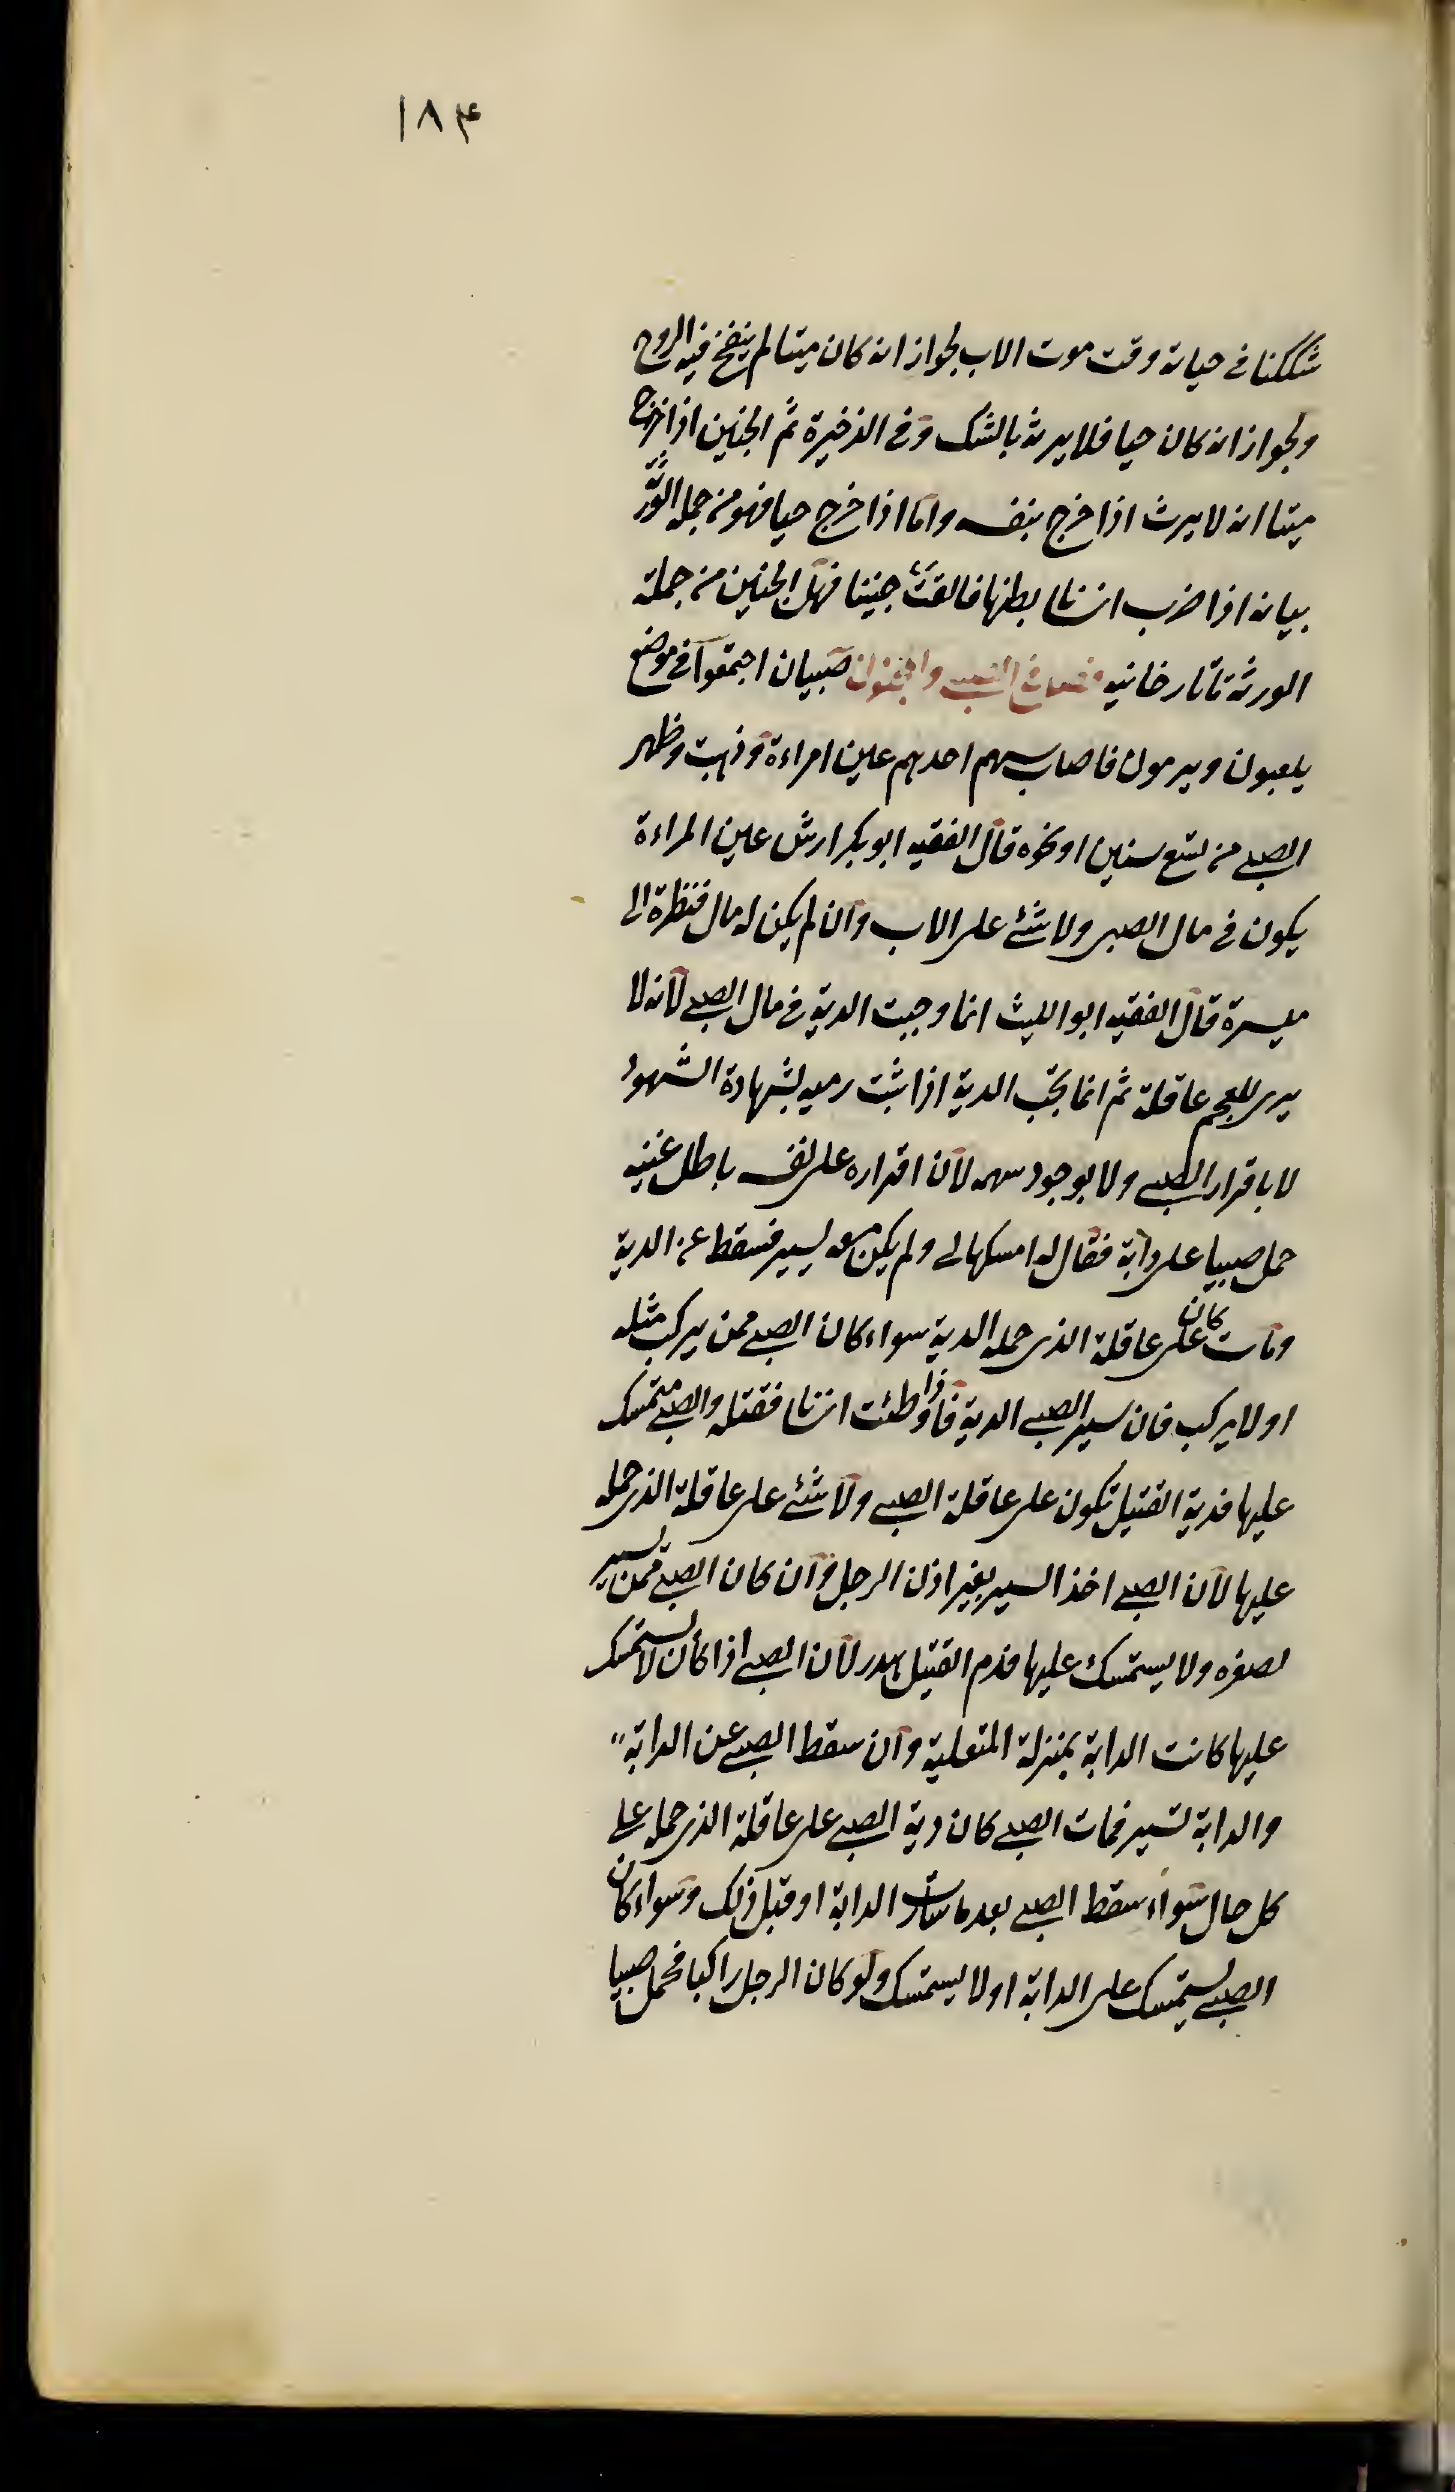 ١٨۴
شككنا فى حياته وقت موت الاب لجواز انه كان ميتا لم ينفخ فيه الروح
ولجواز انه كان حيا فلا يرث بالشك وفى الذخيرة ثم الجنين اذا خرج
ميتا انه لا يرث اذا خرج بنفسه واما اذا خرج حيا فهو من جملة الورثة
بيانه اذا ضرب انسانا بطنها فالقت جنينا فهذا الجنين من جملة
الورثة تاتارخانيه فصل فى الصبى والمجنون صبيان اجتمعوا فى موضع
يلعبون ويرمون فاصاب سهم احدهم عين امراءة وذهبت وظهر
الصبى من تسع سنين او نحوه قال الفقيه ابو بكر ارش عين المراءة
يكون فى مال الصبى ولا شئ على الاب وان لم يكن له مال فنظرة الى
ميسرة قال الفقيه ابو الليث انما وجبت الدية فى مال الصبى لانه لا
يرى للعجم عاقلة ثم انما تجب الدية اذا ثبت رميه بشهادة الشهود
لا باقرار الصبى ولا بوجود سهمه لان اقراره على نفسه باطل غنيه
حمل صبيا على دابة فقال له امسكها لى ولم يكن معه يسير فسقط عن الدبة
ومات كان على عاقلة الذى حمله الدية سواء كان الصبى ممن يركب مثله
او لا يركب فان سير الصبى الدبة فاوطئت انسانا فقتله والصبى متمسك
عليها فدية القتيل تكون على عاقلة الصبى ولا شئ على عاقلة الذى حمله
عليها لان الصبى اخذ السير بغير اذن الرجل وان كان الصبى ممن يسير
لصغره ولا يستمسك عليها فدم القتيل هدر لان الصبى اذا كان لا يستمسك
عليها كانت الدابة بمنزلة المنفلتة وان سقط الصبى عن الدابة
والدابة تسير فمات الصبى كان دية الصبى على عاقلة الذى حمله على
كل حال سواء سقط الصبى بعد ما سارت الدابة او قبل ذلك وسواء كان
الصبى يستمسك على الدابة او لا يستمسك ولو كان الرجل راكبا فحمل صبيا